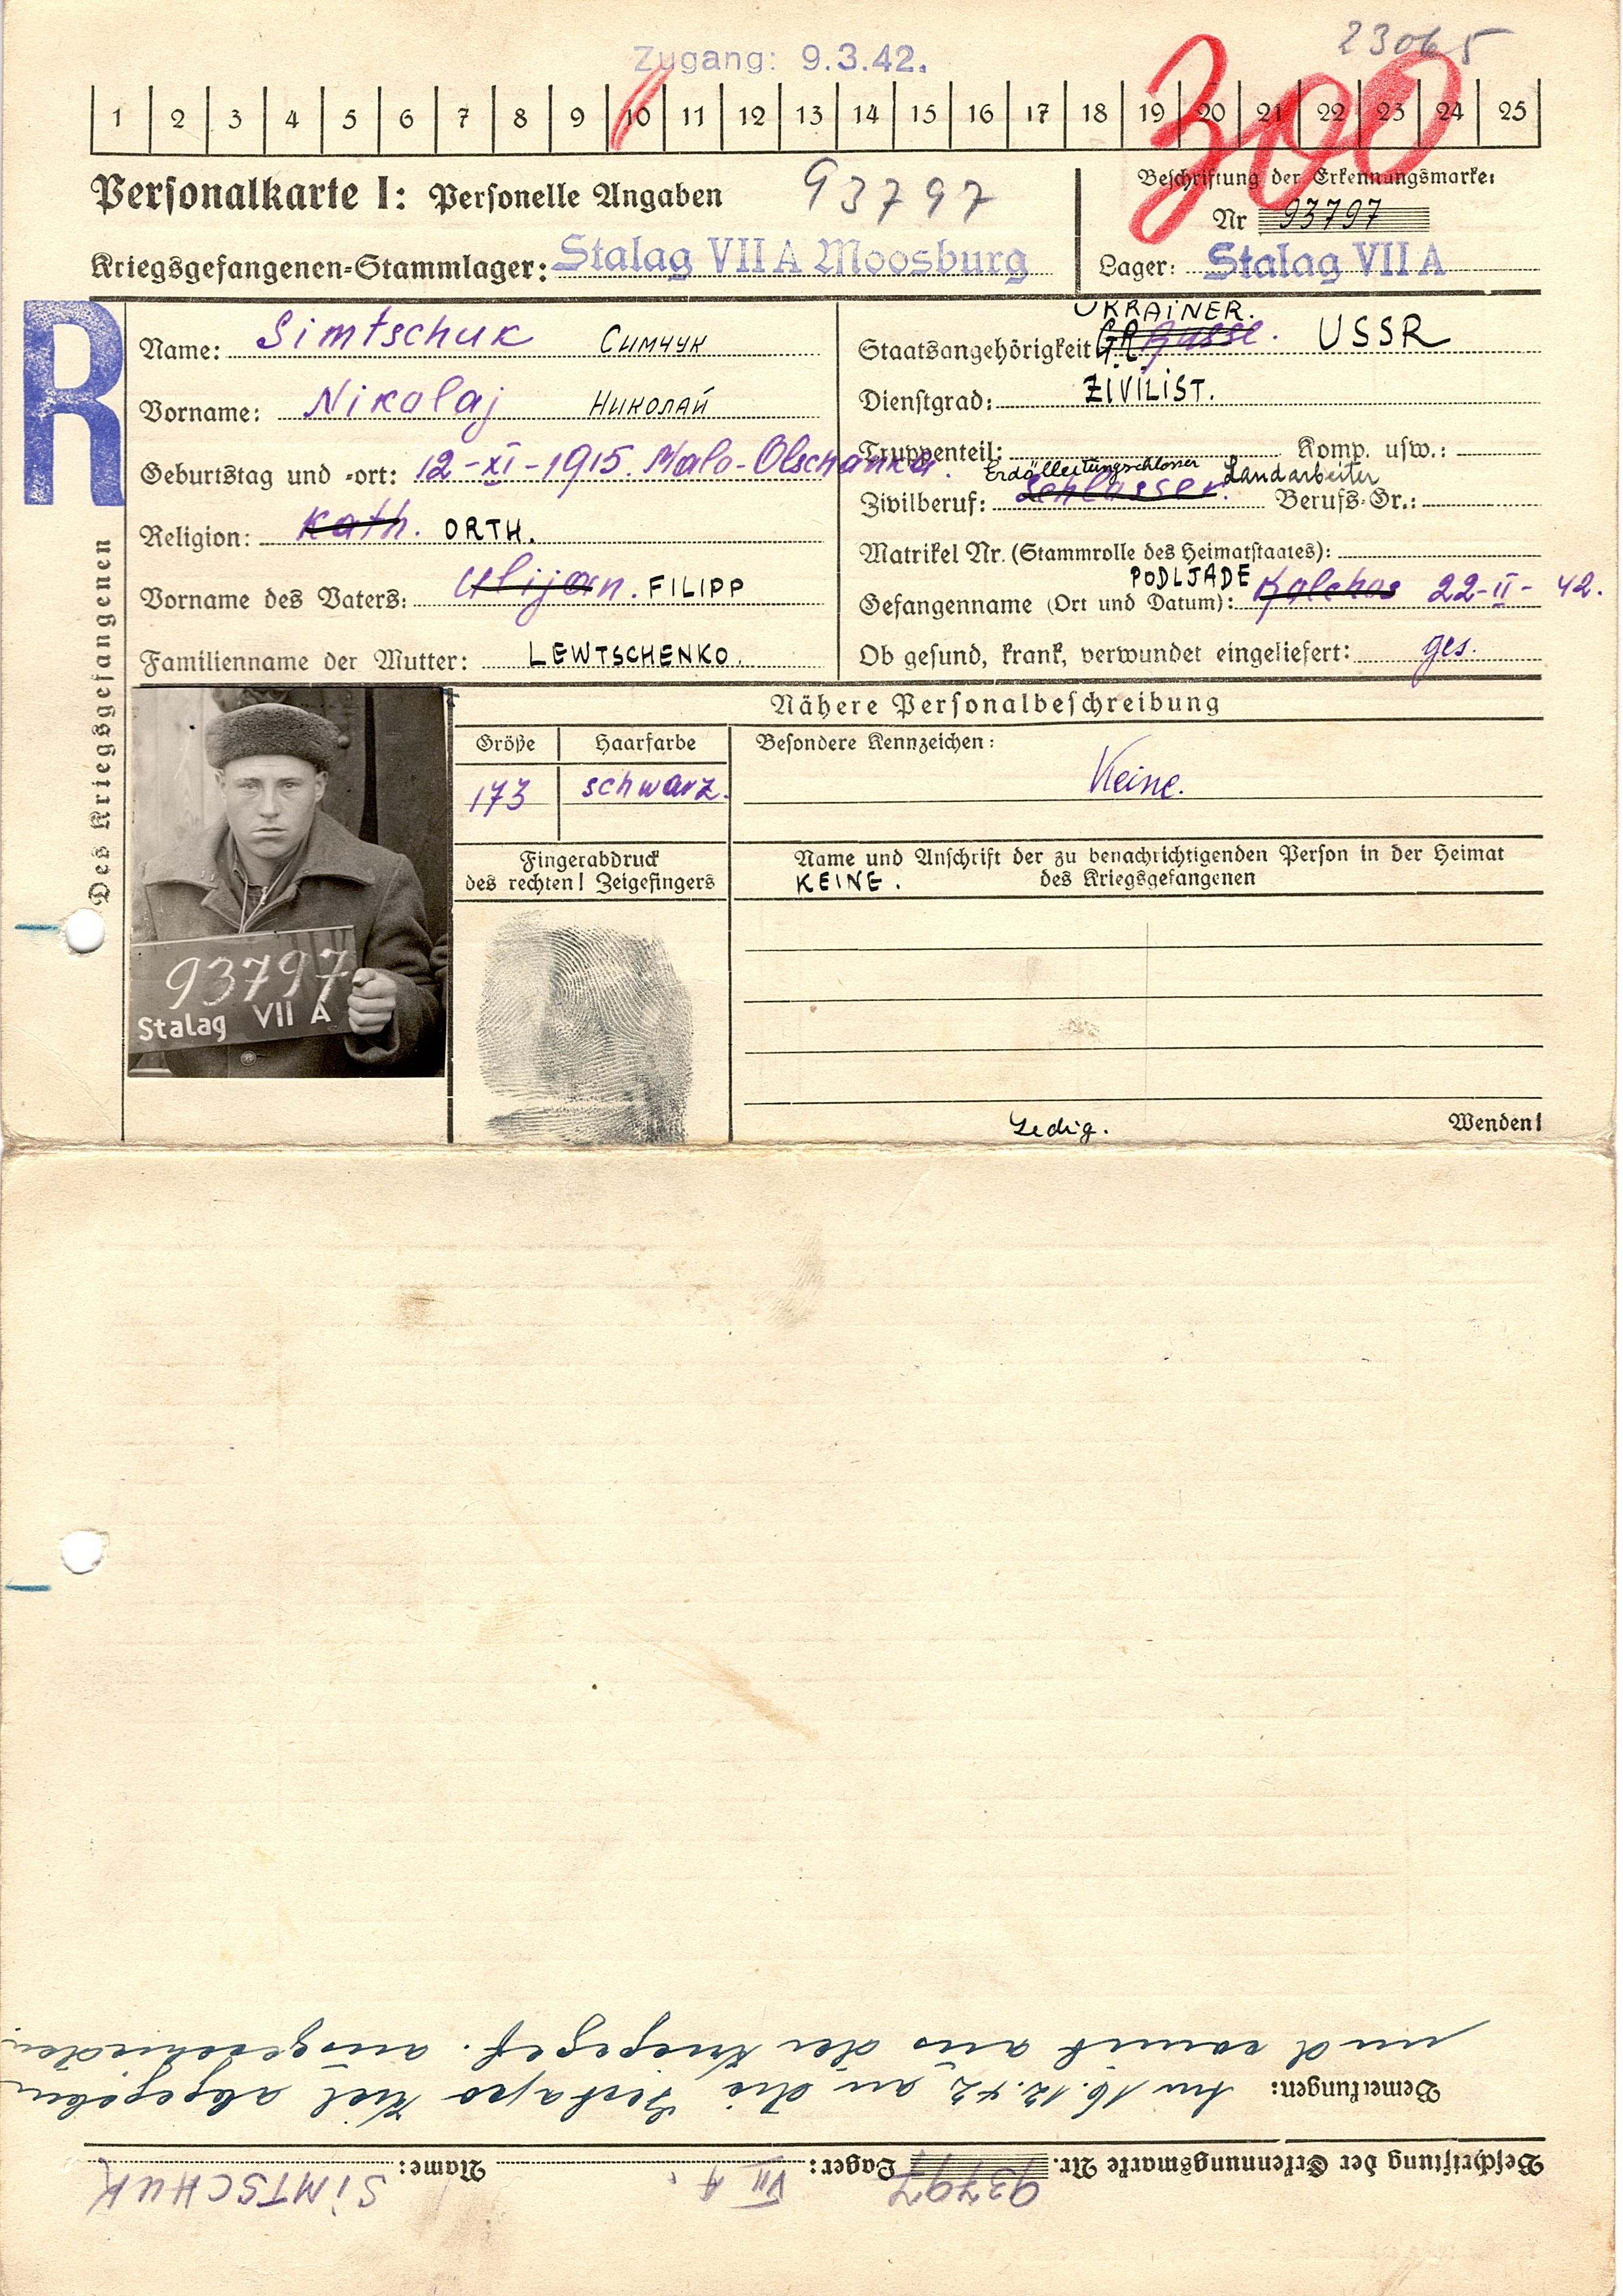 23065
Zugang: 9.3.42.
1 2 3 4 5 6 7 8 9 10 11 12 13 14 15 16 17 18 19 20 21 22 23 24 25
300
Personalkarte I: Personelle Angaben 93797
Beschriftung der Erkennungsmarke:
Nr 93797
Kriegsgefangenen-Stammlager: Stalag VII A Moosburg
Lager: Stalag VII A
R
Des Kriegsgefangenen
Name: Simtschuk Симчук
Vorname: Nikolaj Николай
Geburtstag und -ort: 12-XI-1915. Malo-Olschanka.
Religion: Kath. ORTH.
Vorname des Vaters: Ulijan. FILIPP
Familienname der Mutter: LEWTSCHENKO.
UKRAINER.
Staatsangehörigkeit: G.R. Russe. USSR
Dienstgrad: ZIVILIST.
Truppenteil: Komp. usw.:
Erdölleitungschlosser Landarbeiter
Zivilberuf: Schlosser. Berufs-Gr.:
Matrikel Nr. (Stammrolle des Heimatstaates):
PODLJADE
Gefangenname (Ort und Datum): Kolchos 22-II-42.
Ob gesund, krank, verwundet eingeliefert: ges.
93797
Stalag VII A
Nähere Personalbeschreibung
Größe Haarfarbe Besondere Kennzeichen:
173 schwarz. Keine.
Fingerabdruck
des rechten! Zeigefingers
Name und Anschrift der zu benachrichtigenden Person in der Heimat
des Kriegsgefangenen
KEINE.
Ledig.
Wenden!
Beschriftung der Erkennungsmarke Nr. 93797 Lager: VII A. Name: SIMTSCHUK
Bemerkungen: Am 16.12.42 an die Gestapo Kiel abgegeben
und somit aus der Kriegsgef. ausgeschieden.